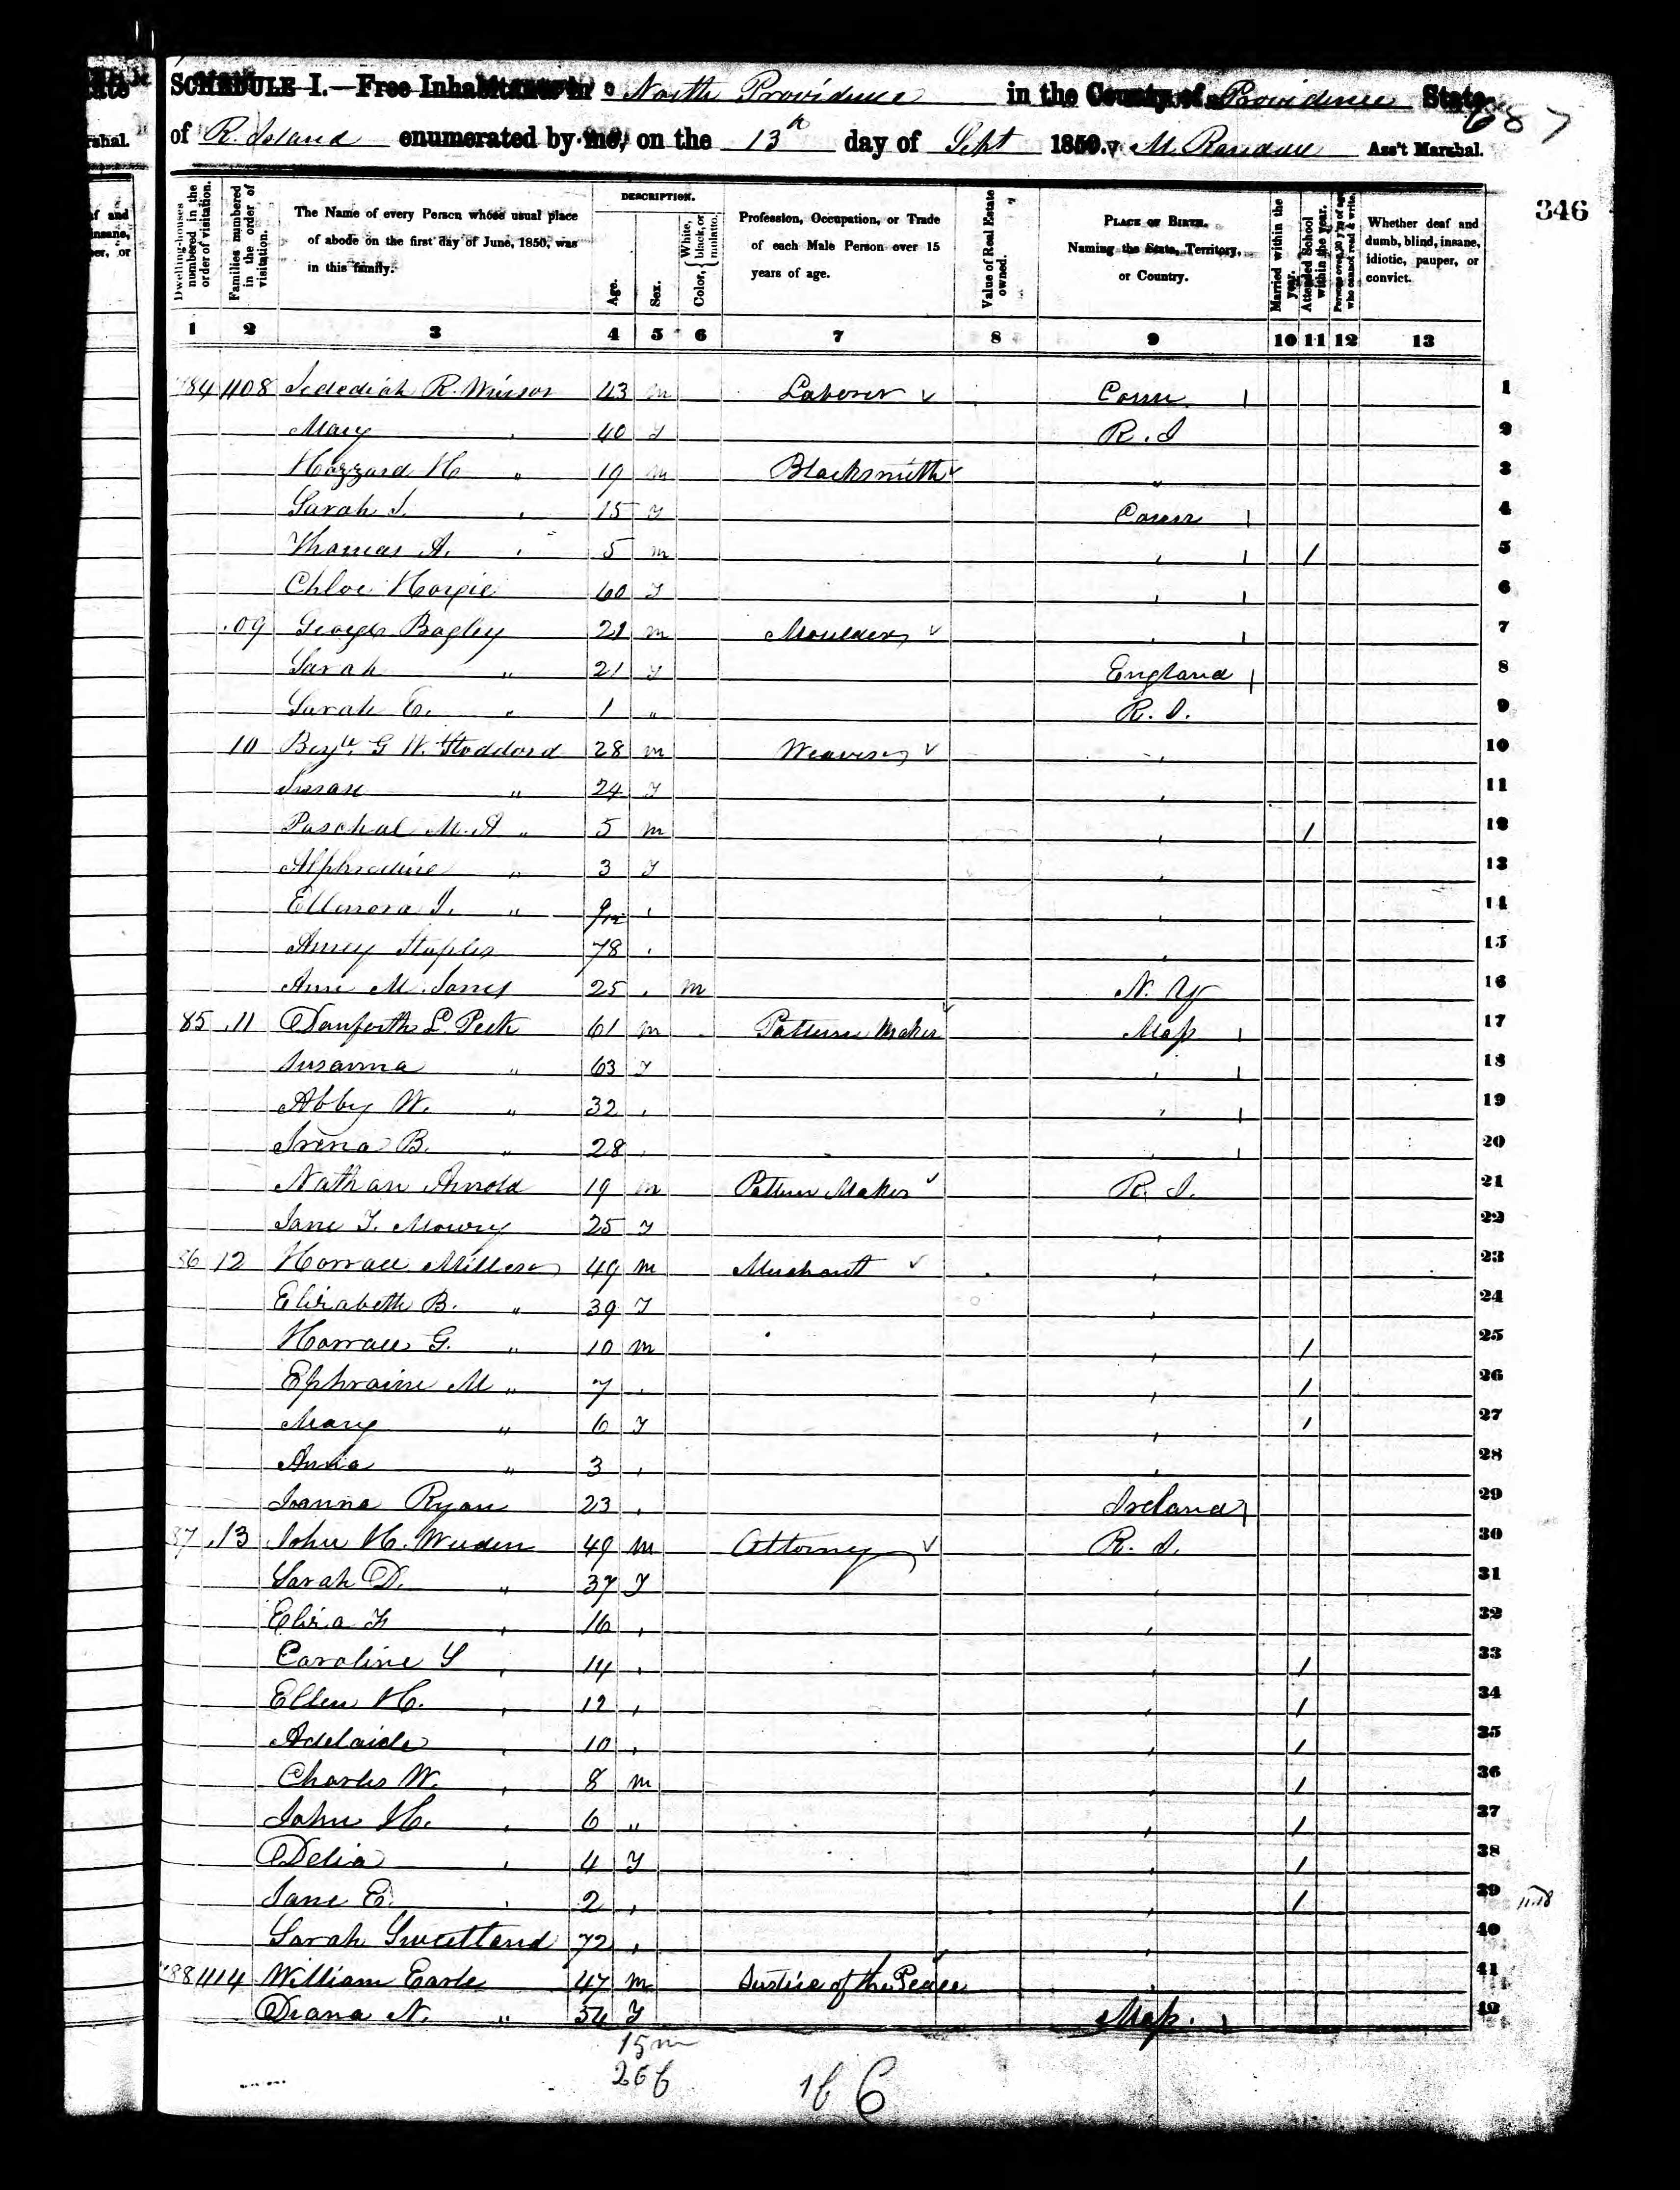 SCHEDULE I.—Free Inhabitants in North Providence in the County of Providence State
687
of R. Island enumerated by me, on the 13th day of Sept 1850. M. Randall Ass't Marshal.
346
Dwelling-houses numbered in the order of visitation.
Families numbered in the order of visitation.
The Name of every Person whose usual place of abode on the first day of June, 1850, was in this family.
DESCRIPTION.
Age.
Sex.
Color, { White, black, or mulatto.
Profession, Occupation, or Trade of each Male Person over 15 years of age.
Value of Real Estate owned.
PLACE OF BIRTH. Naming the State, Territory, or Country.
Married within the year.
Attended School within the year.
Persons over 20 y'rs of age who cannot read & write.
Whether deaf and dumb, blind, insane, idiotic, pauper, or convict.
1 2 3 4 5 6 7 8 9 10 11 12 13
84 408 Jedediah R. Winsor 43 m Laborer Conn. 1
Mary 40 F R. I 2
Hazzard H " 19 m Blacksmith " 3
Sarah J. 15 F Conn 4
Thomas A. 5 m 1 5
Chloe Hoxie 60 F 6
09 George Bagley 21 m Moulder 7
Sarah " 21 F England 8
Sarah E. " 1 " R. I. 9
10 Benjn G W. Stoddard 28 m Weaver 10
Susan " 24 F 11
Paschal M. A " 5 m 1 12
Alphredine " 3 F 13
Ellenora J. " 9/12 14
Amey Staples 78 15
Ann M. Jones 25 m N. Y 16
85 11 Danforth L. Peck 61 m Pattern Maker Mass 17
Susanna " 63 F 18
Abby W. " 32 19
Irena B. " 28 20
Nathan Arnold 19 m Pattern Maker R. I. 21
Jane F. Mowry 25 F 22
86 12 Horrace Miller 49 m Merchant 23
Elizabeth B. " 39 F 24
Horrace G. " 10 m 1 25
Ephraim M " 7 1 26
Mary " 6 F 1 27
Anna " 3 28
Joanna Ryan 23 Ireland 29
87 13 John H. Weeden 49 m Attorney R. I. 30
Sarah D. " 37 F 31
Eliza F 16 32
Caroline S 14 1 33
Ellen H. 12 1 34
Adelaide 10 1 35
Charles W. 8 m 1 36
John H. 6 " 1 37
Delia 4 F 1 38
Jane E. 2 1 39
Sarah Sweetland 72 40
88 414 William Earle 47 m Justice of the Peace 41
Diana N. " 54 F Mass. 42
15 m
26 f
16